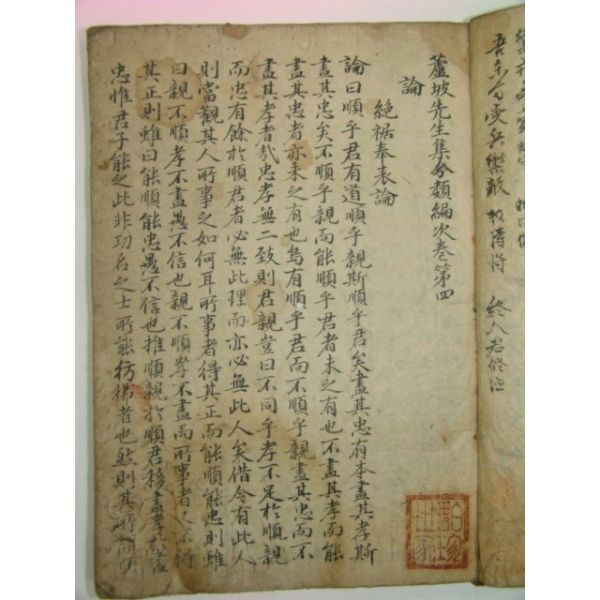 蘆坡先生集分類編次卷第四
論
絶裾奉表論
論曰順乎君有道順乎親斯順乎君矣盡其忠有本盡其孝斯
盡其忠矣不順乎親而能順乎君者未之有也不盡其孝而能
盡其忠者亦未之有也烏有順乎君而不順乎親盡其忠而不
盡其孝者哉忠孝無二致則君親豈曰不同乎孝不足於順親
而忠有餘於順君者必無此理而亦必無此人矣借令有此人
則當觀其人所事之如何耳所事者得其正而能順能忠則雖
曰親不順孝不盡愚不信也親不順孝不盡而所事者又不得
其正則雖曰能順能忠愚不信也推順親於順君移盡孝於盡
忠惟君子能之此非功名之士所能彷彿者也然則其所